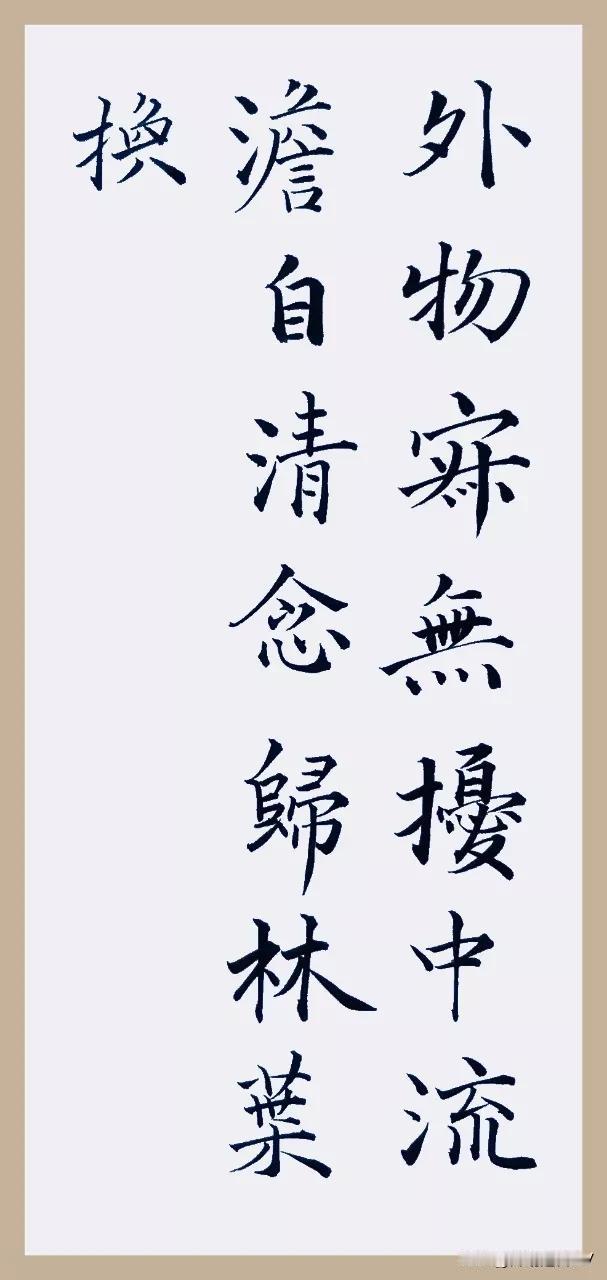 外物寂無擾中流
澹自清念歸林葉
換